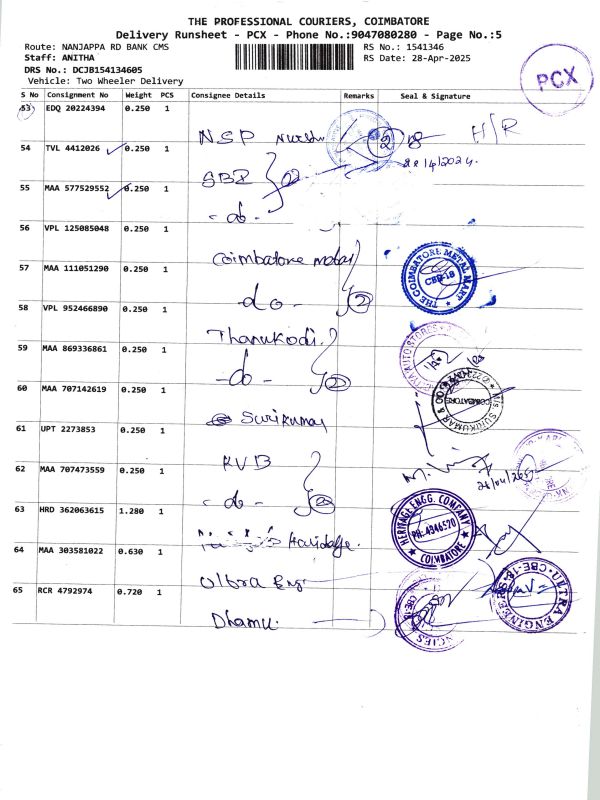 THE PROFESSIONAL COURIERS, COIMBATORE
Delivery Runsheet - PCX - Phone No.:9047080280 - Page No.:5
Route: NANJAPPA RD BANK CMS
RS No.: 1541346
Staff: ANITHA
RS Date: 28-Apr-2025
DRS No.: DCJB154134605
Vehicle: Two Wheeler Delivery
PCX
S No Consignment No Weight PCS Consignee Details Remarks Seal & Signature
53 EDQ 20224394 0.250 1 NSP H/R
54 TVL 4412026 0.250 1 SBI
55 MAA 577529552 0.250 1 - do -
56 VPL 125085048 0.250 1 Coimbatore metal
57 MAA 111051290 0.250 1 - do - 2
THE COIMBATORE METAL MART
CBE-18
58 VPL 952466890 0.250 1 Thanukodi
59 MAA 869336861 0.250 1 - do - 2
60 MAA 707142619 0.250 1 Surikumar
SURIKUMAR & CO
COIMBATORE
61 UPT 2273853 0.250 1 KVB
62 MAA 707473559 0.250 1 - do - 2
63 HRD 362063615 1.280 1
HERITAGE ENGG. COMPANY
PH: 4346570
COIMBATORE
64 MAA 303581022 0.630 1 Ultra Eng
ULTRA ENGINEERS
65 RCR 4792974 0.720 1 Dhamu